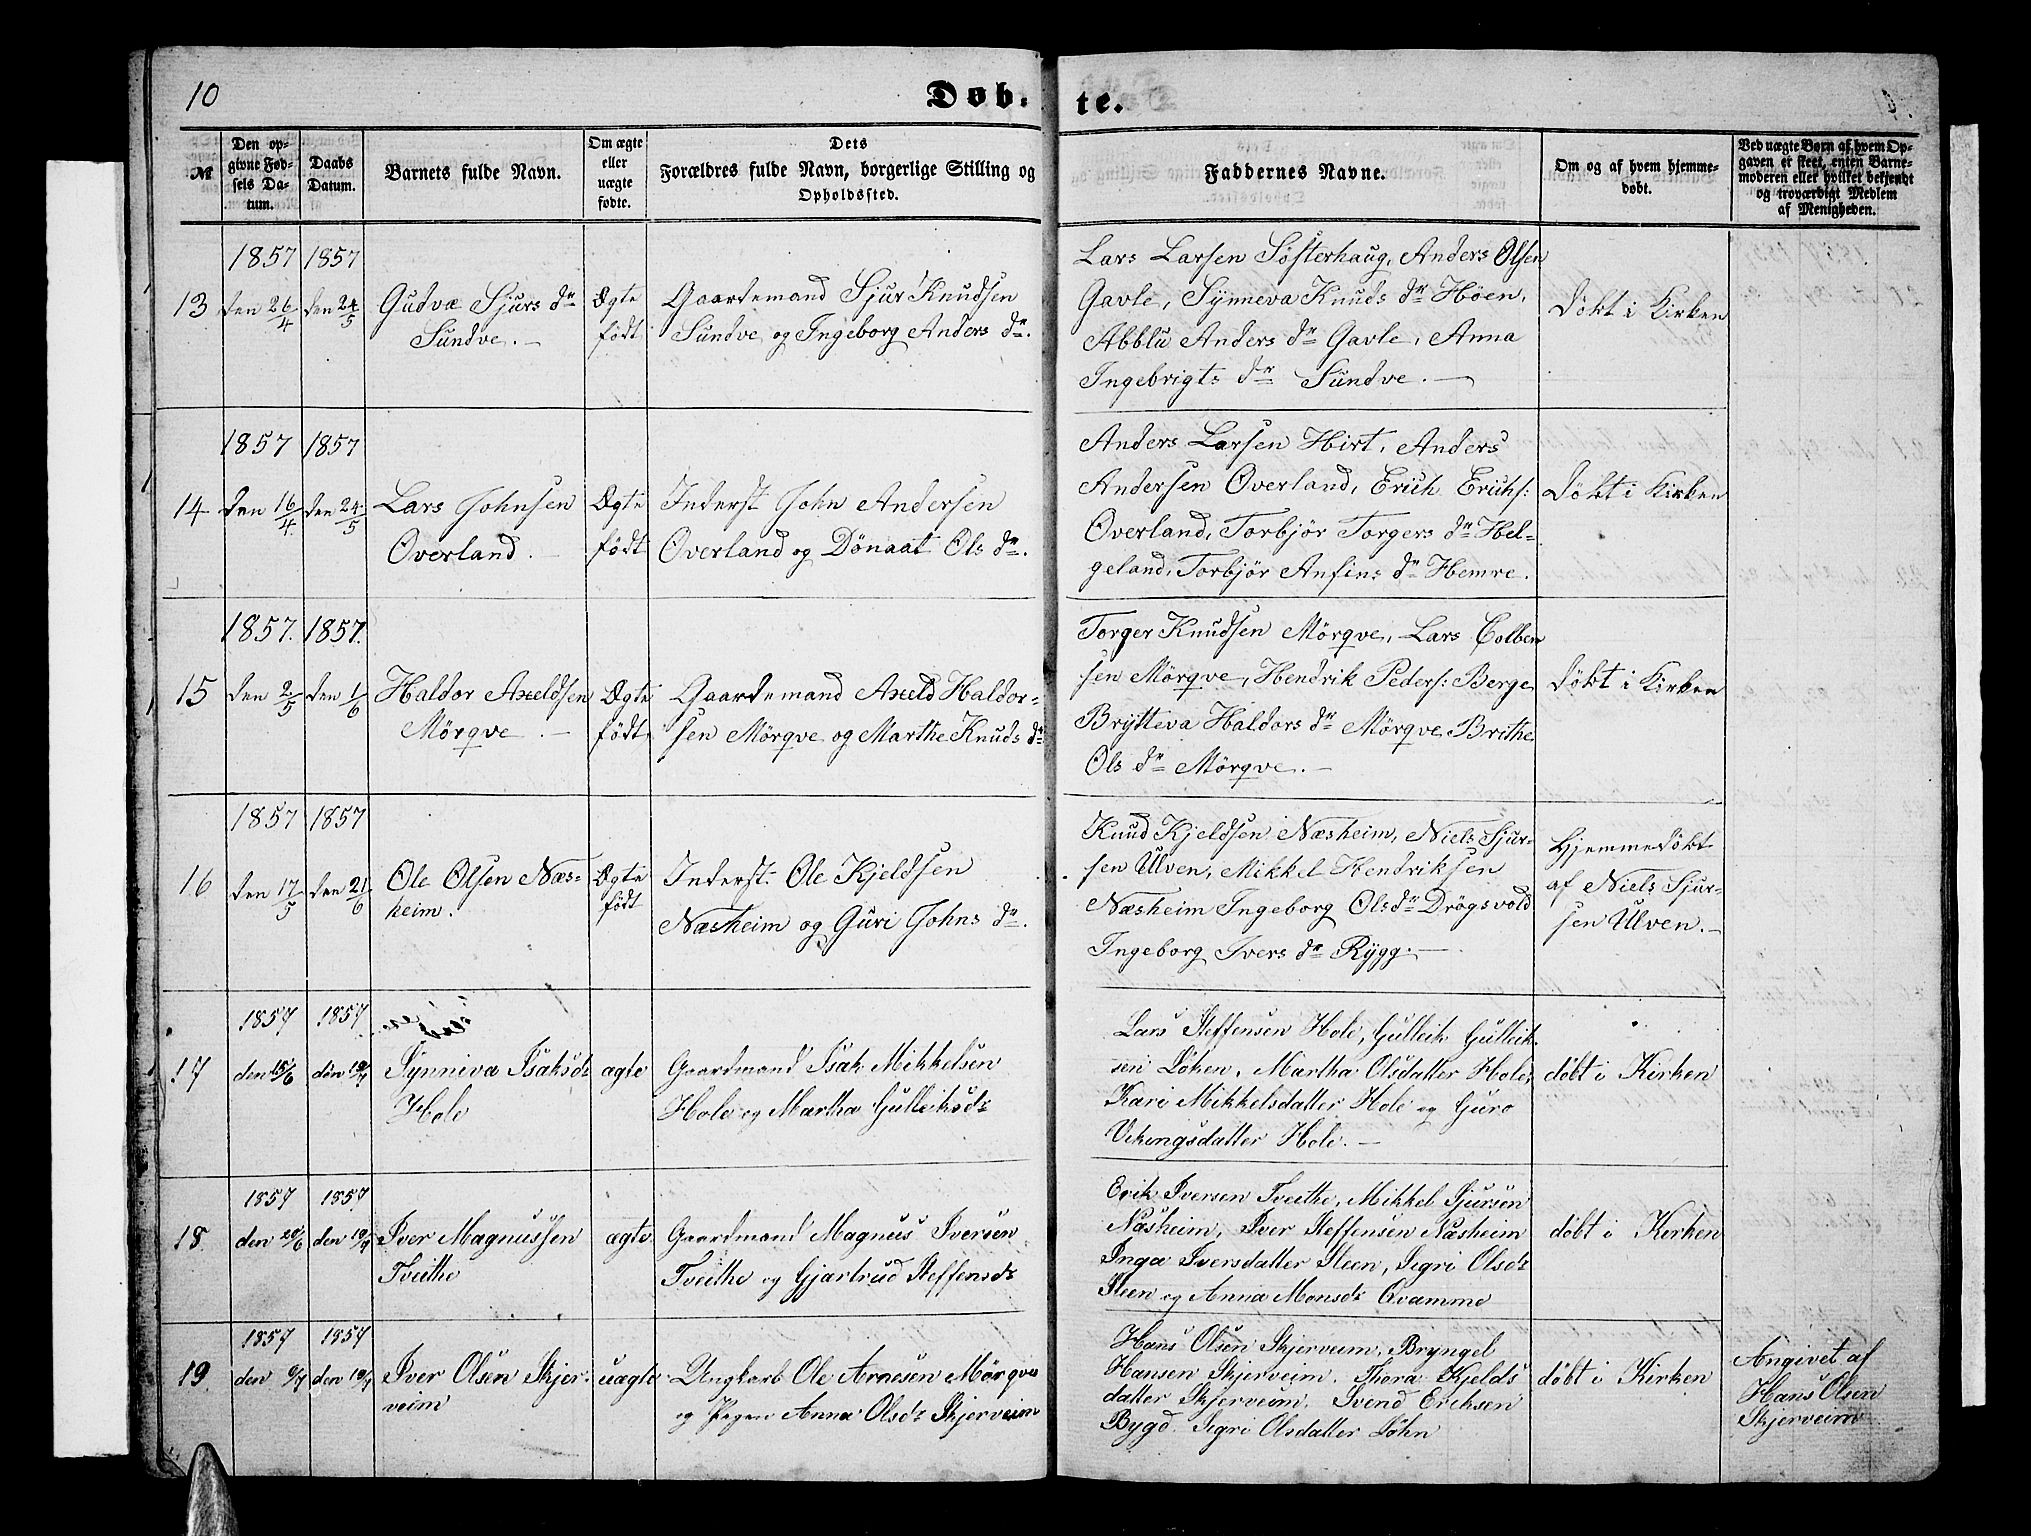 10
Døb-
te.
№
Den op-
givne Fød-
sels Da-
tum.
Daabs
Datum.
Barnets fulde Navn.
Om ægte
eller
uægte
fødte.
Dets
Forældres fulde Navn, borgerlige Stilling og
Opholdssted.
Faddernes Navne.
Om og af hvem hjemme-
døbt.
Ved uægte Børn af hvem Op-
gaven er skeet, enten Barne-
moderen eller hvilket bekjendt
og troværdigt Medlem
af Menigheden.
13
1857
den 26/4
1857
den 24/5
Gudvæ Sjurs dr
Sundve. —
Ægte
født
Gaardemand Sjur Knudsen
Sundve og Ingeborg Anders dr.
Lars Larsen Søsterhaug, Anders Olsen
Gavle, Synneva Knuds dr Høen,
Abblu Anders dr Gavle, Anna
Ingebrigts dr Sundve. —
Døbt i Kirken
14
1857
den 16/4
1857
den 24/5
Lars Johnsen
Overland. —
Ægte
født
Inderst John Andersen
Overland og Dönaat Ols dr.
Anders Larsen Hirt, Anders
Andersen Overland, Erich Erichs:
Overland, Torbjör Torgers dr Hel-
geland, Torbjör Anfins dr Hemre.
Døbt i Kirken
15
1857.
den 2/5
1857.
den 1/6
Haldor Axeldsen
Mörqve —
Ægte
født
Gaardemand Axeld Haldor-
sen Mörqve og Marthe Knuds dr
Torger Knudsen Mörqve, Lars Colben
sen Mörqve, Hendrik Peders: Berge
Brytteva Haldors dr Mörqve, Brithe
Ols dr Mörqve. —
Døbt i Kirken
16
1857
den 17/5
1857
den 21/6
Ole Olsen Næs-
heim.
Ægte
født
Inderst. Ole Kjeldsen
Næsheim og Guri Johns dr.
Knud Kjeldsen Næsheim, Niels Sjur-
sen Ulven, Mikkel Hendriksen
Næsheim Ingeborg Ols dr Drögsvold
Ingeborg Ivers dr Rygg. —
Hjemmedøbt
af Niels Sjur-
sen Ulven. —
17
1857
den 15/6
1857
den 19/7
Synniva Isaksdr
Hole
ægte
Gaardmand Isak Mikkelsen
Hole og Martha Gulleiksdr
Lars Steffensen Hole, Gulleik Gulleik-
sen Løken, Martha Olsdatter Hole,
Kari Mikkelsdatter Hole og Guro
Vikingsdatter Hole. —
døbt i Kirken
18
1857
den 20/6
1857
den 19/7
Iver Magnussen
Tveithe
ægte
Gaardmand Magnus Iversen
Tveithe og Gjartrud Steffensdr
Erik Iversen Tveithe, Mikkel Sjursen
Næsheim, Iver Steffensen Næsheim
Inga Iversdatter Steen, Sigri Olsdr
Steen og Anna Monsdr Qvamme
døbt i Kirken
19.
1857
den 9/7
1857
den 19/7
Iver Olsen Skjer-
veim
uægte
Ungkarl Ole Arnesen Mörqve
og Pigen Anna Olsdr Skjerveim
Hans Olsen Skjerveim, Bryngel
Hansen Skjerveim, Thora Kjelds
datter Skjerveim, Svend Ericksen
Bygd. Sigri Olsdatter Løhn
døbt i Kirken
Angivet af
Hans Olsen
Skjerveim